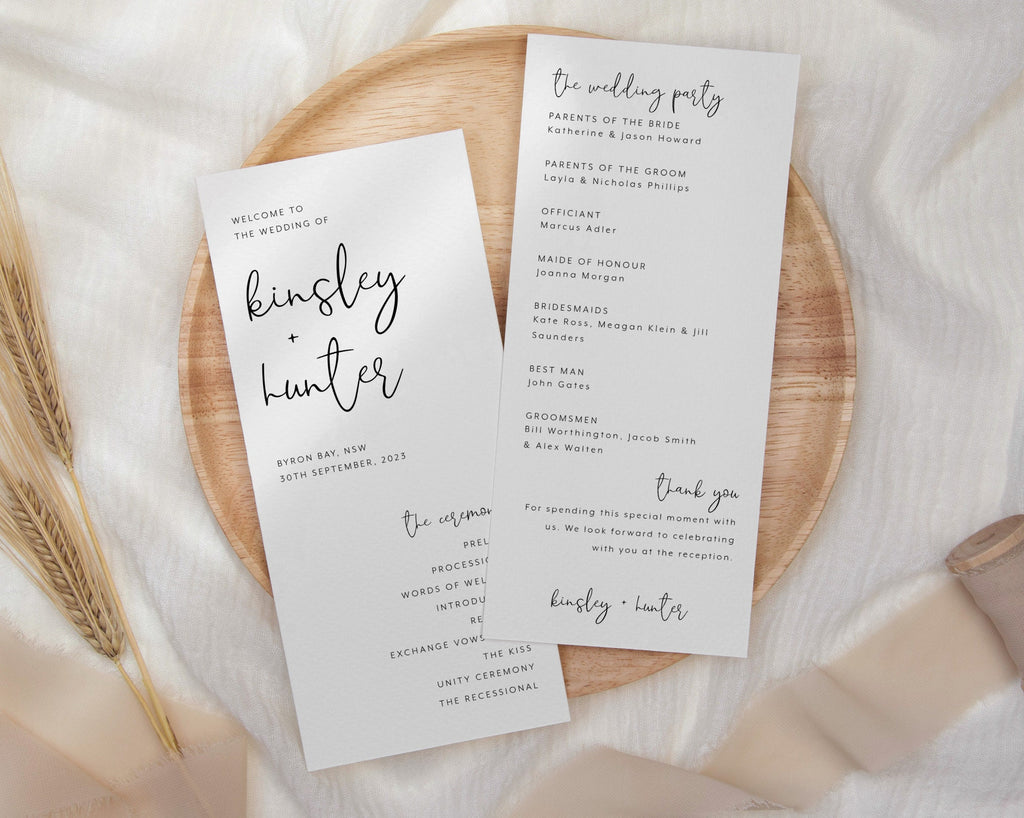 WELCOME TO
THE WEDDING OF
kinsley
+
hunter
BYRON BAY, NSW
30TH SEPTEMBER, 2023
the
WORDS OF
EXCHANGE VOWS
THE KISS
UNITY CEREMONY
THE RECESSIONAL
the wedding party
PARENTS OF THE BRIDE
Katherine & Jason Howard
PARENTS OF THE GROOM
Layla & Nicholas Phillips
OFFICIANT
Marcus Adler
MAIDE OF HONOUR
Joanna Morgan
BRIDESMAIDS
Kate Ross, Meagan Klein & Jill
Saunders
BEST MAN
John Gates
GROOMSMEN
Bill Worthington, Jacob Smith
& Alex Walten
thank you
For spending this special moment with
us. We look forward to celebrating
with you at the reception.
kinsley + hunter